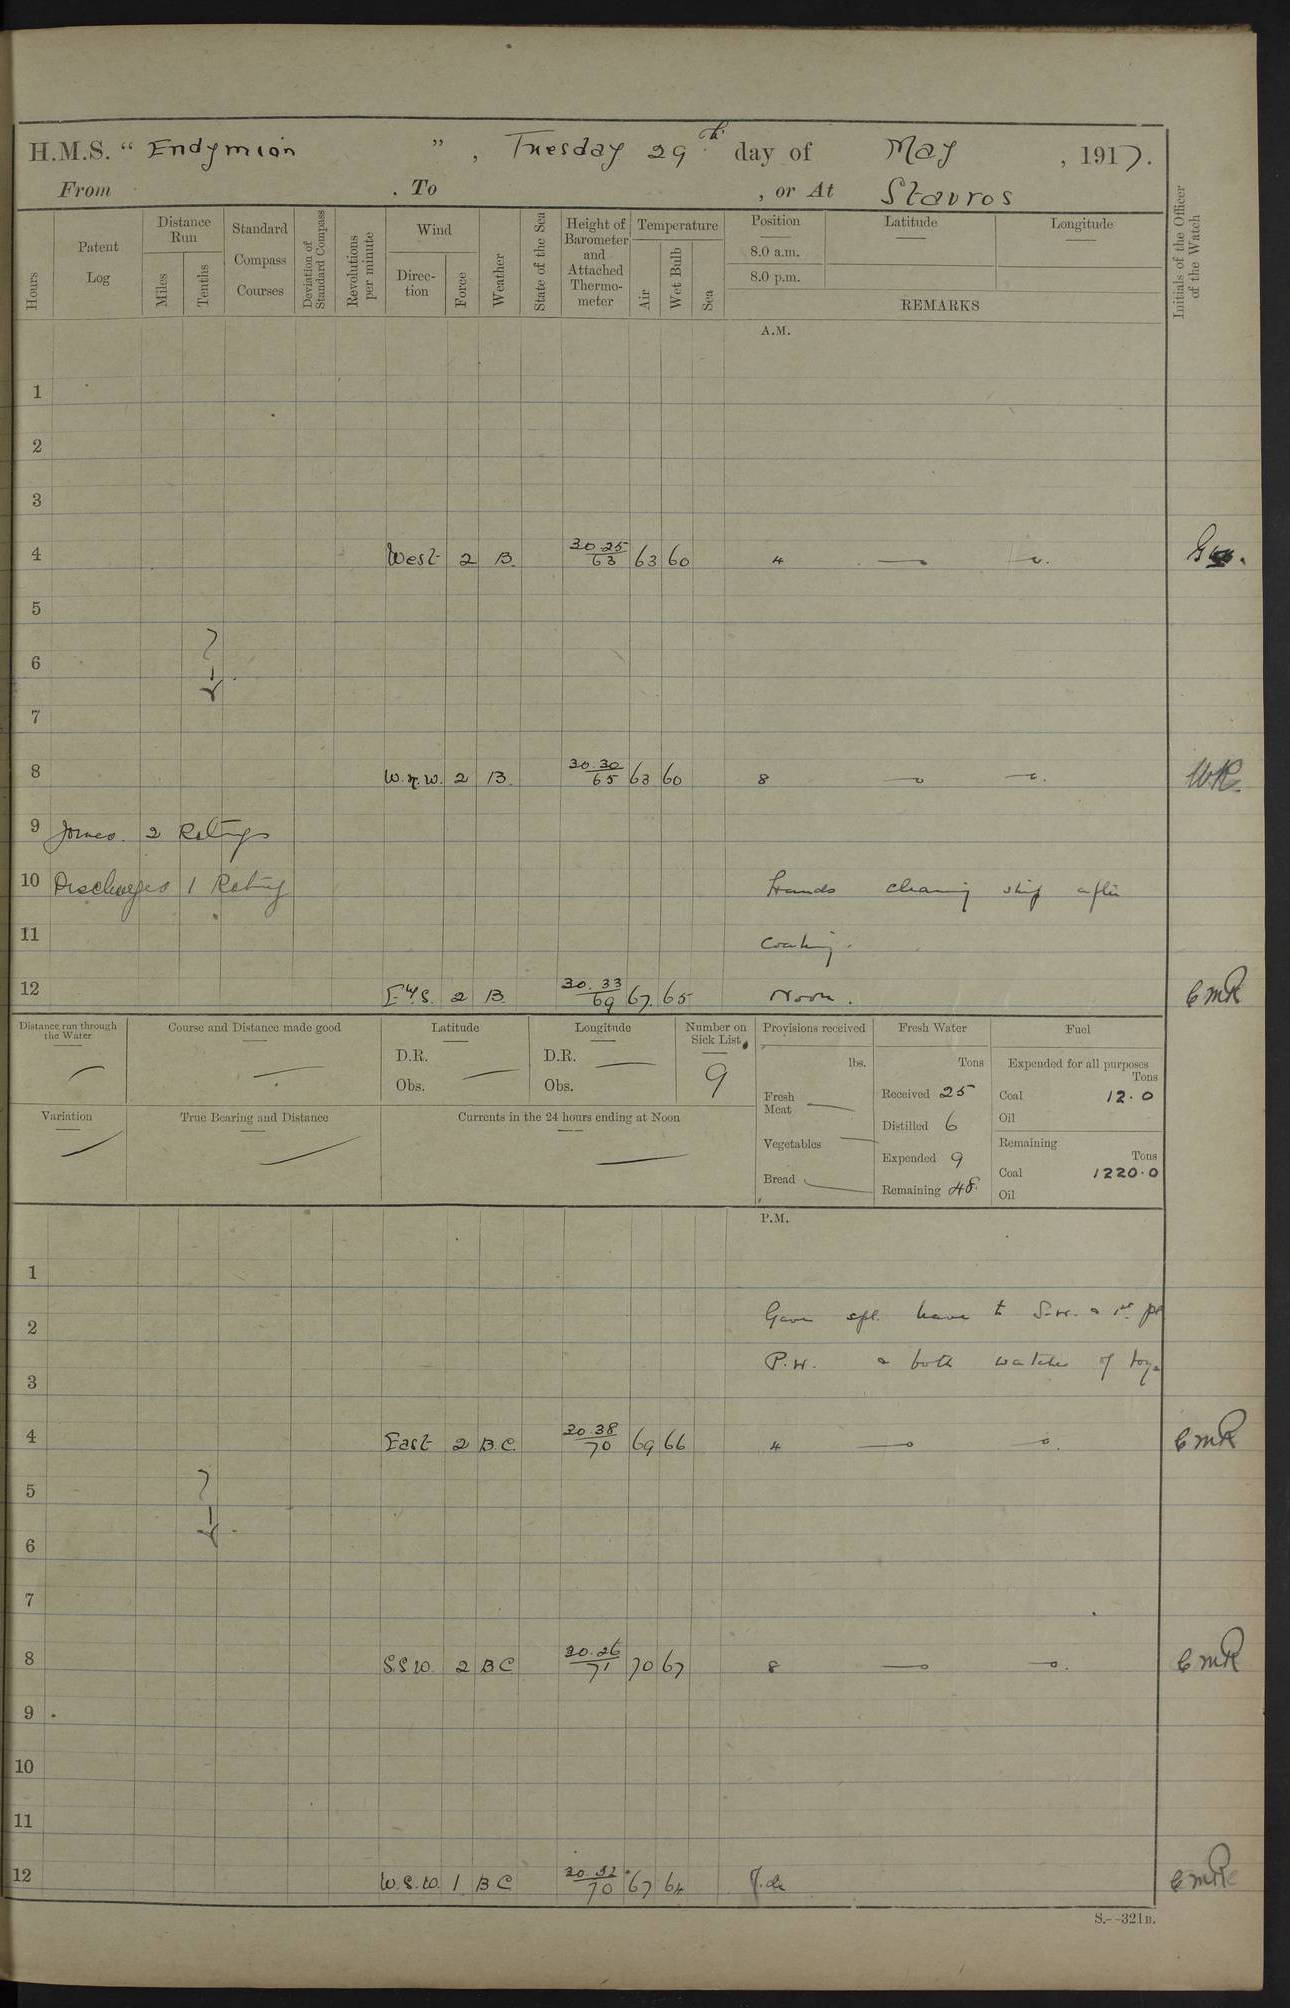 H.M.S. “ Endymion ” , Tuesday 29th day of May , 1917.
From . To , or At Stavros
Hours
Patent Log
Distance Run
Miles
Tenths
Standard Compass Courses
Deviation of Standard Compass
Revolutions per minute
Wind
Direc-tion
Force
Weather
State of the Sea
Height of Barometer and Attached Thermo-meter
Temperature
Air
Wet Bulb
Sea
Position
8.0 a.m.
8.0 p.m.
Latitude
Longitude
REMARKS
Initials of the Officer of the Watch
A.M.
1
2
3
4 West 2 B. 30.25/63 63 60 4
5
6
7
8 W.N.W. 2 B. 30.30/65 63 60 8 W.R.
9 Joined 2 Ratings
10 Discharged 1 Rating Hands cleaning ship after
11 coaling.
12 E'ly S. 2 B. 30.33/69 67 65 Noon. CMR
Distance run through the Water
Course and Distance made good
Latitude
D.R.
Obs.
Longitude
D.R.
Obs.
Number on Sick List
9
Variation
True Bearing and Distance
Currents in the 24 hours ending at Noon
Provisions received
lbs.
Fresh Meat
Vegetables
Bread
Fresh Water
Tons
Received 25
Distilled 6
Expended 9
Remaining 48
Fuel
Expended for all purposes
Tons
Coal 12.0
Oil
Remaining
Tons
Coal 1220.0
Oil
P.M.
1
2 Gave spl. leave to S.W. & 1st pt
3 P.W. & both watches of boys
4 East 2 B.C. 30.38/70 69 66 4 CMR
5
6
7
8 S.S.W. 2 BC 30.26/71 70 67 8 CMR
9
10
11
12 W.S.W. 1 BC 30.32/70 67 64 CMR
S.--321B.